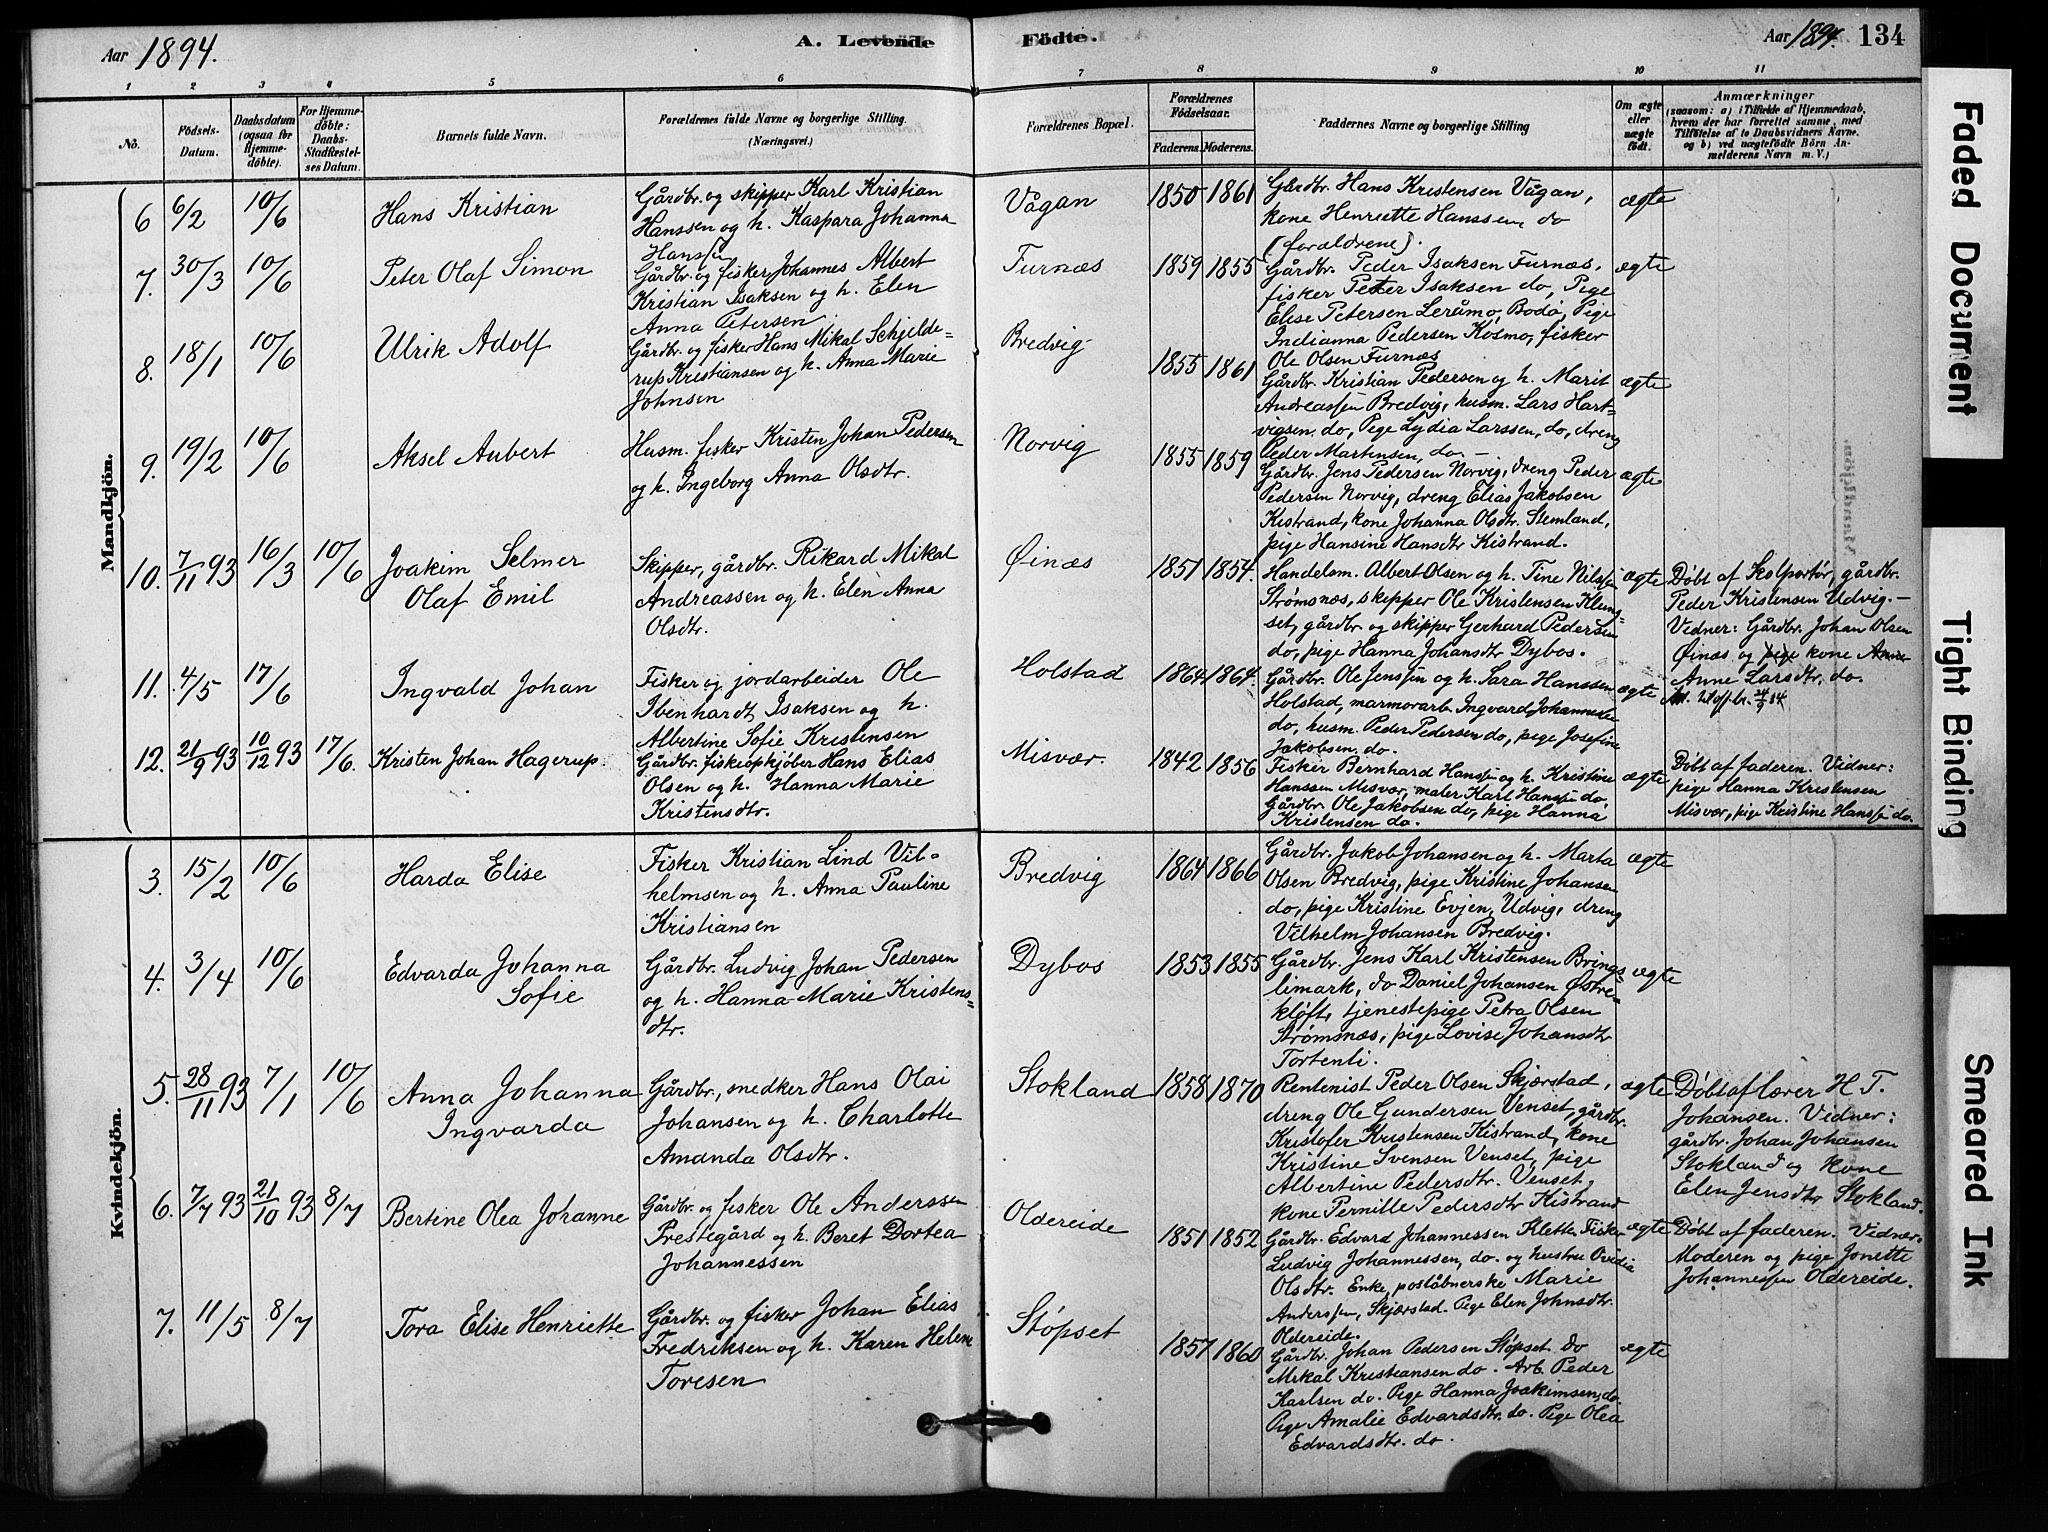 Aar 1894.
A. Levende Födte.
Aar 1894. 134
1 2 3 4 5 6 7 8 9 10 11
No.
Födsels-
Datum.
Daabsdatum
(ogsaa for
Hjemme-
döbte).
For Hjemme-
döbte:
Daabs-
Stadfæstel-
ses Datum.
Barnets fulde Navn.
Forældrenes fulde Navne og borgerlige Stilling.
(Næringsvei.)
Forældrenes Bopæl.
Forældrenes
Födselsaar.
Faderens. Moderens.
Faddernes Navne og borgerlige Stilling
Om ægte
eller
uægte
födt.
Anmærkninger
(saasom: a) i Tilfælde af Hjemmedaab,
hvem der har forrettet samme, med
Tilföielse af to Daabsvidners Navne.
og b) ved uægtefödte Börn An-
melderens Navn m. V.)
Mandkjön.
6 6/2 10/6 Hans Kristian
Gårdbr. og skipper Karl Kristian
Hanssen og h. Kaspara Johanna
Hanssen
Vågan 1850 1861
Gårdbr. Hans Kristensen Vågan,
kone Henriette Hanssen, do
(forældrene).
ægte
7. 30/3 10/6 Peter Olaf Simon
Gårdbr. og fisker Johannes Albert
Kristian Isaksen og h. Elen
Anna Petersen
Furnæs 1859 1855
Gårdbr. Peder Isaksen Furnæs,
fisker Peter Isaksen do, Pige
Elise Petersen Leråmo, Bodø, Pige
Indianna Pedersen Kosmo, fisker
Ole Olsen Furnæs
ægte
8. 18/1 10/6 Ulrik Adolf
Gårdbr. og fisker Hans Mikal Schjelde-
rup Kristiansen og h. Anna Marie
Johnsen
Bredvig 1855 1861
Gårdbr. Kristian Pedersen og h. Marit
Andreassen Bredvig, husm. Lars Hart-
vigsen do, Pige Lydia Larssen, do, dreng
Peder Martensen, do. -
ægte
9. 19/2 10/6 Aksel Aubert
Husm. fisker Kristen Johan Pedersen
og h. Ingeborg Anna Olsdtr.
Norvig 1855 1859
Gårdbr. Jens Pedersen Norvig, dreng Peder
Pedersen Norvig, dreng Elias Jakobsen
Kistrand, kone Johanna Olsdtr. Stemland,
pige Hansine Hansdtr Kistrand.
ægte
10. 7/11 93 16/3 10/6 Joakim Selmer
Olaf Emil
Skipper, gårdbr. Rikard Mikal
Andreassen og h. Elen Anna
Olsdtr.
Øinæs 1851 1854.
Handelsm. Albert Olsen og h. Tine Nilssen
Strømsnæs, skipper Ole Kristensen Klung-
set, gårdbr og skipper Gerhard Pedersen
do, pige Hanna Johansdtr Dybos.
ægte
Døbt af Kolportør, gårdbr.
Peder Kristensen Udvig. -
Vidner: Gårdbr. Johan Olsen
Øinæs og pige kone Anne
Anne Larsdtr, do.
11. 4/5 17/6 Ingvald Johan
Fisker og jordarbeider Ole
Ibenhardt Isaksen og h.
Albertine Sofie Kristensen
Holstad 1864 1864
Gårdbr. Ole Jenssen og h. Sara Hanssen
Holstad, marmorarb. Ingvard Johannessen
do, husm. Peder Pedersen do, pige Josefine
Jakobsen do.
ægte
12. 21/9 93 10/12 93 17/6. Kristen Johan Hagerup.
Gårdbr. fiskeopkjøber Hans Elias
Olsen og h. Hanna Marie
Kristensdtr.
Misvær. 1842 1856
Fisker Bernhard Hanssen og h. Kristine
Hanssen Misvær, maler Karl Hanssen do,
Gårdbr. Ole Jakobsen do, pige Hanna
Kristensen do.
ægte
Døbt af faderen. Vidner:
pige Hanna Kristensen
Misvær, pige Kristine Hanssen do.
Kvindekjön.
3. 15/2 10/6 Harda Elise
Fisker Kristian Lind Vil-
helmsen og h. Anna Pauline
Kristiansen
Bredvig 1864 1866
Gårdbr. Jakob Johansen og h. Marta
Olsen Bredvig, pige Kristine Johansen
do, pige Kristine Evjen, Udvig, dreng
Vilhelm Johansen Bredvig.
ægte
4. 3/4 10/6 Edvarda Johanna
Sofie
Gårdbr. Ludvig Johan Pedersen
og h. Hanna Marie Kristens-
dtr.
Dybos 1853 1855
Gårdbr. Jens Karl Kristensen Brings-
limark, do Daniel Johansen Østre-
kløft, tjenestepige Petra Olsen
Strømsnæs, pige Lovise Johansdtr
Tortenli.
ægte
5. 28/11 93 7/1 10/6 Anna Johanna
Ingvarda
Gårdbr., snedker Hans Olai
Johansen og h. Charlotte
Amanda Olsdtr.
Stokland 1858 1870
Rentenist Peder Olsen Skjærstad,
dreng Ole Gundersen Venset, gårdbr.
Kristofer Kristensen Kistrand, kone
Kristine Svensen Venset, pige
Albertine Pedersdtr. Venset,
kone Pernille Pedersdtr Kistrand
ægte
Døbt af lærer H. T.
Johansen. Vidner:
gårdbr. Johan Johansen
Stokland og kone
Elen Jensdtr Stokland.
6. 7/7 93 21/10 93 8/7 Bertine Olea Johanne
Gårdbr. og fisker Ole Anderssen
Prestegård og h. Beret Dortea
Johannessen
Oldereide 1851 1852
Gårdbr. Edvard Johannessen Klette. Fisker
Ludvig Johannessen, do. og hustru Ovidia
Olsdtr. Enke, poståbnerske Marie
Anderssen, Skjærstad. Pige Elen Johnsdtr.
Oldereide.
ægte
Døbt af faderen. Vidner:
Moderen og pige Jonette
Johannessen Oldereide.
7. 11/5 8/7 Tora Elise Henriette
Gårdbr. og fisker Johan Elias
Fredriksen og h. Karen Helene
Toresen
Støpset 1857 1860
Gårdbr. Johan Pedersen Støpset. Do
Mikal Kristiansen do. Arb. Peder
Karlsen do. Pige Hanna Joakimsen, do.
Pige Amalie Edvardsdtr. do. Pige Olea
Edvardsdtr. do.
ægte
Faded Document
Tight Binding
Smeared Ink